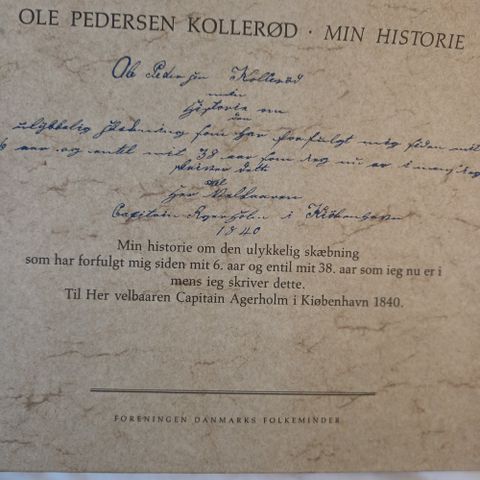 OLE PEDERSEN KOLLERØD · MIN HISTORIE
Ole Pedersen Kollerød
Historie om
den
ulykkelig skæbning som har forfulgt mig siden mit
6 aar og entil mit 38 aar som ieg nu er i mens ieg
skriver dette
til
Her Velbaaren
Capitain Agerholm i Kiøbenhavn
1840
Min historie om den ulykkelig skæbning
som har forfulgt mig siden mit 6. aar og entil mit 38. aar som ieg nu er i
mens ieg skriver dette.
Til Her velbaaren Capitain Agerholm i Kiøbenhavn 1840.
FORENINGEN DANMARKS FOLKEMINDER